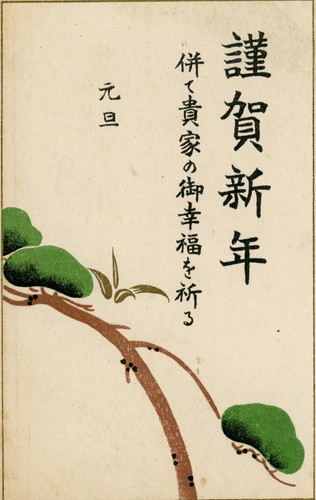 謹賀新年
併て貴家の御幸福を祈る
元旦